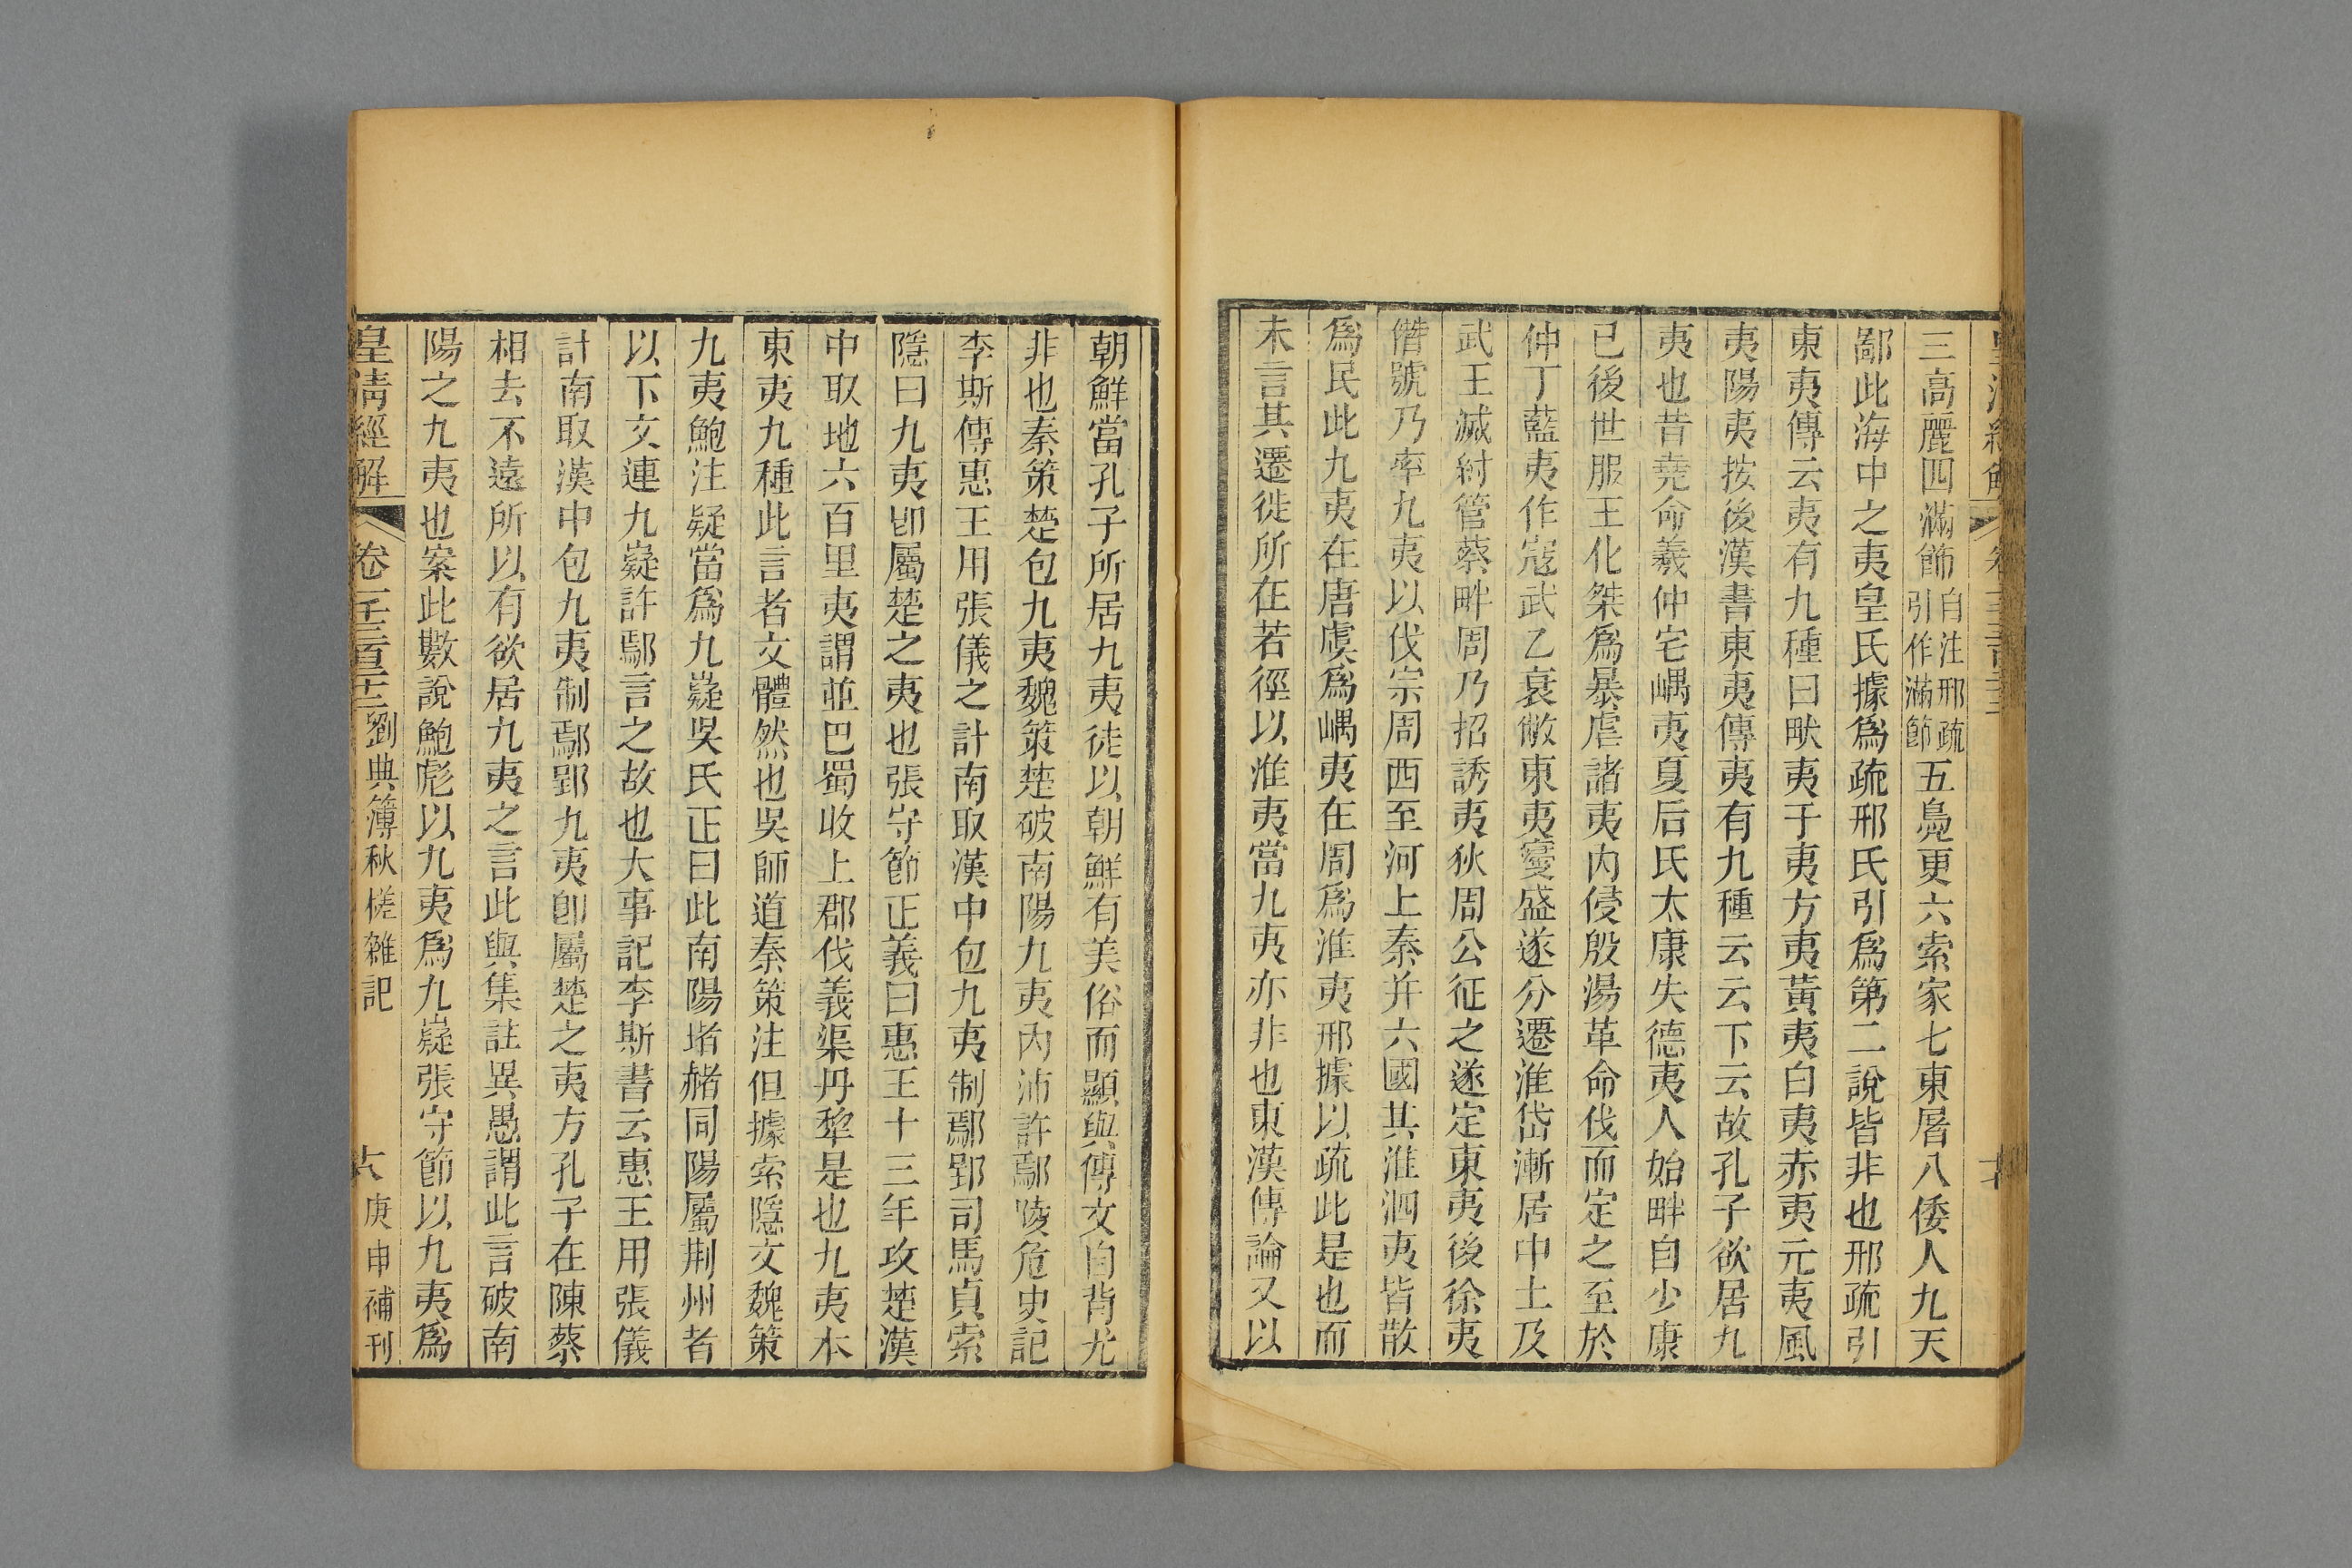 三高麗四滿飾自注邢疏引作滿節五鳧更六索家七東屠八倭人九天
鄙此海中之夷皇氏據爲疏邢氏引爲第二說皆非也邢疏引
東夷傳云夷有九種曰畎夷于夷方夷黃夷白夷赤夷元夷風
夷陽夷按後漢書東夷傳夷有九種云云下云故孔子欲居九
夷也昔堯命羲仲宅嵎夷夏后氏太康失德夷人始畔自少康
已後世服王化桀爲暴虐諸夷內侵殷湯革命伐而定之至於
仲丁藍夷作寇武乙衰敝東夷寖盛遂分遷淮岱漸居中土及
武王滅紂管蔡畔周乃招誘夷狄周公征之遂定東夷後徐夷
僭號乃率九夷以伐宗周西至河上秦并六國其淮泗夷皆散
爲民此九夷在唐虞爲嵎夷在周爲淮夷邢據以疏此是也而
未言其遷徙所在若徑以淮夷當九夷亦非也東漢傳論又以
朝鮮當孔子所居九夷徒以朝鮮有美俗而顯與傳文自背尤
非也秦策楚包九夷魏策楚破南陽九夷內沛許鄢陵危史記
李斯傳惠王用張儀之計南取漢中包九夷制鄢郢司馬貞索
隱曰九夷卽屬楚之夷也張守節正義曰惠王十三年攻楚漢
中取地六百里夷謂並巴蜀收上郡伐義渠丹犂是也九夷本
東夷九種此言者文體然也吳師道秦策注但據索隱文魏策
九夷鮑注疑當爲九嶷吳氏正曰此南陽堵赭同陽屬荆州者
以下文連九嶷許鄢言之故也大事記李斯書云惠王用張儀
計南取漢中包九夷制鄢郢九夷卽屬楚之夷方孔子在陳蔡
相去不遠所以有欲居九夷之言此與集註異愚謂此言破南
陽之九夷也案此數說鮑彪以九夷爲九嶷張守節以九夷爲
皇清經解 卷 劉典簿秋槎雜記 六 庚申補刊